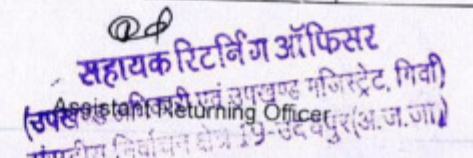 सहायक रिटर्निंग ऑफिसर
(उपखण्ड अधिकारी एवं उपखण्ड मजिस्ट्रेट, गिर्वा)
Assistant Returning Officer
संसदीय निर्वाचन क्षेत्र 19-उदयपुर(अ.ज.जा.)